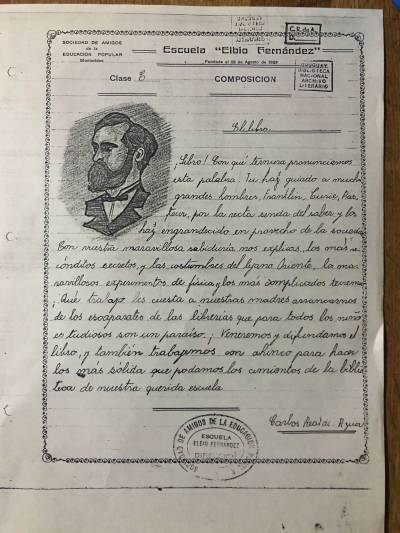 SOCIEDAD DE AMIGOS
de la
EDUCACION POPULAR
Montevideo
Escuela "Elbio Fernández"
Fundada el 29 de Agosto de 1869
C.R. de A.
URUGUAY
BIBLIOTECA
NACIONAL
ARCHIVO
LITERARIO
Clase E
COMPOSICION
El libro.
¡Libro! Con qué ternura pronunciamos
esta palabra. Tu haz guiado a mucho
grandes hombres, Franklin, Curie, Pas
teur, por la recta senda del saber y los
haz engrandecido en provecho de la sociedad
Con vuestra maravillosa sabiduría nos explicas, los más re
cónditos secretos, y las costumbres del lejano Oriente, la ma
ravillosos experimentos de física y los más complicados
¡Qué trabajo les cuesta a nuestras madres arrancarnos
de los escaparates de las librerías que para todos los niños
estudiosos son un paraíso. ¡Veneremos y difundamos el
libro, y también trabajemos con ahinco para hacer
los más sólida que podamos los cimientos de la biblio
teca de nuestra querida escuela.
Carlos Real de Azua
SOCIEDAD DE AMIGOS DE LA EDUCACION
ESCUELA
ELBIO FERNANDEZ